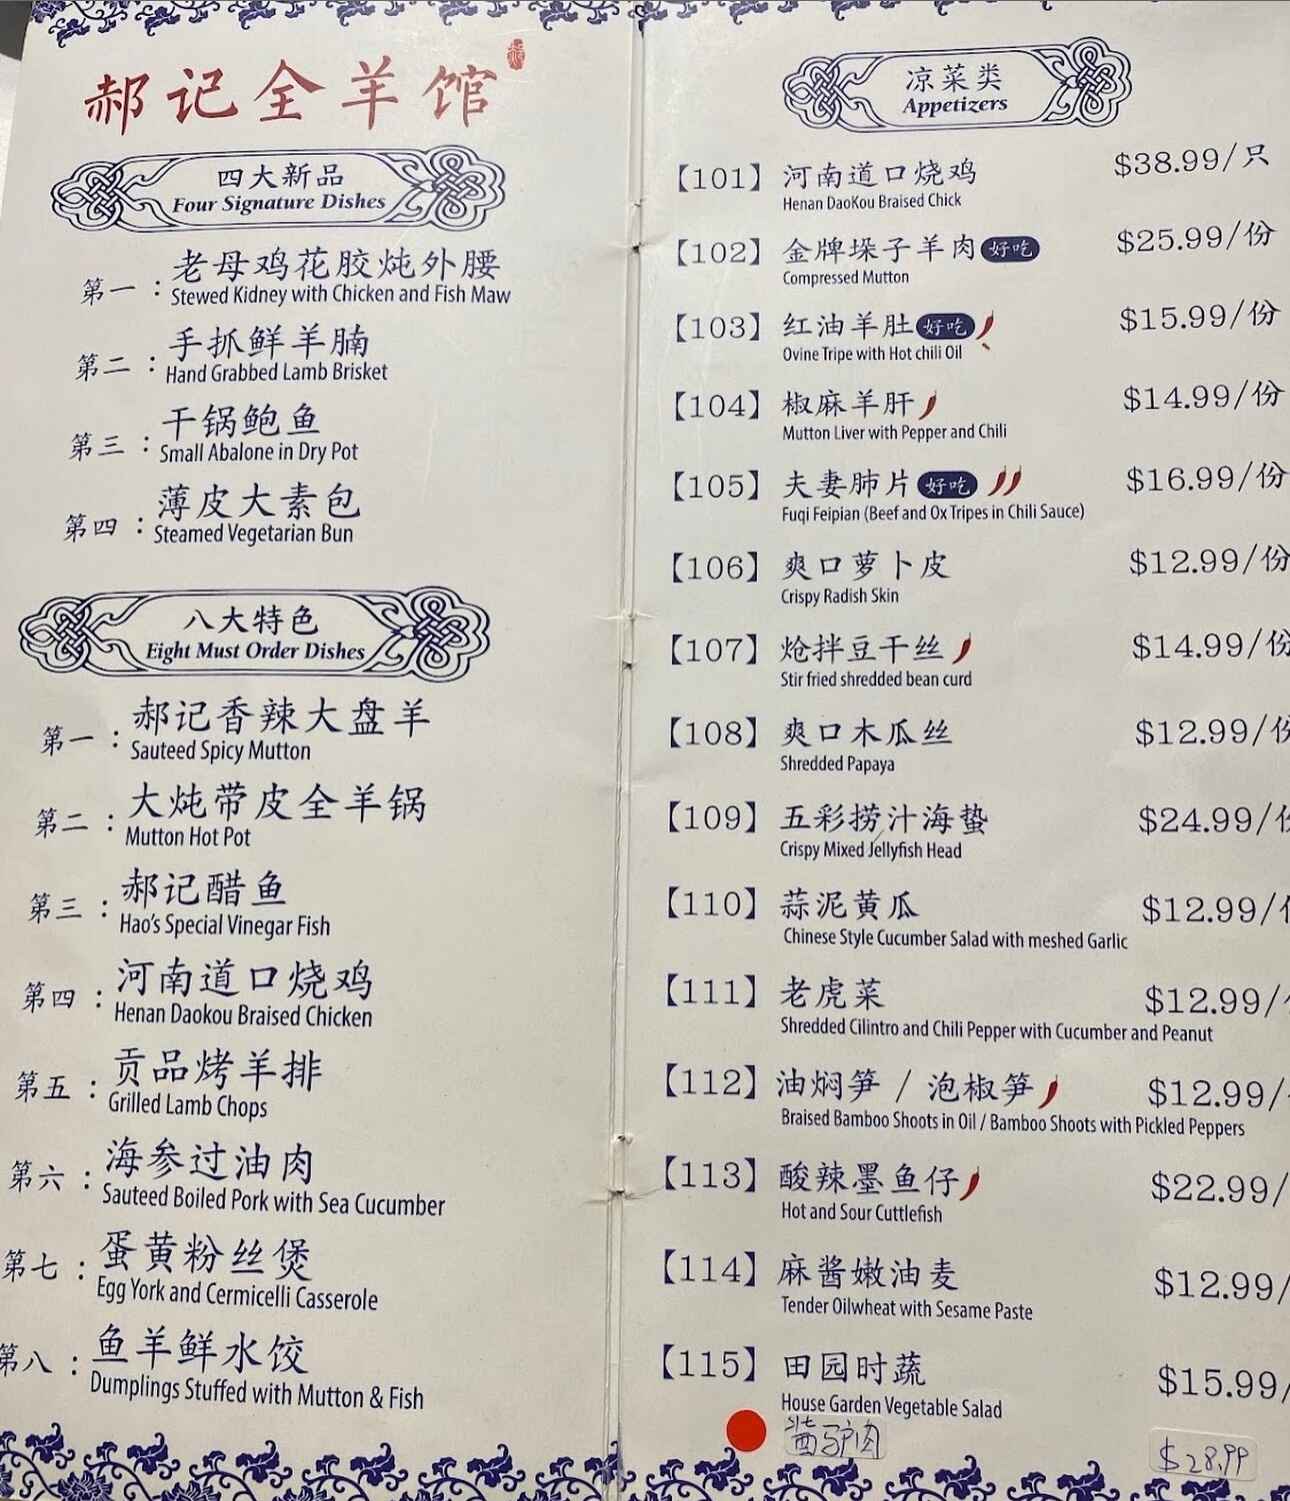 郝记全羊馆
四大新品
Four Signature Dishes
第一：老母鸡花胶炖外腰
Stewed Kidney with Chicken and Fish Maw
第二：手抓鲜羊腩
Hand Grabbed Lamb Brisket
第三：干锅鲍鱼
Small Abalone in Dry Pot
第四：薄皮大素包
Steamed Vegetarian Bun
八大特色
Eight Must Order Dishes
第一：郝记香辣大盘羊
Sauteed Spicy Mutton
第二：大炖带皮全羊锅
Mutton Hot Pot
第三：郝记醋鱼
Hao's Special Vinegar Fish
第四：河南道口烧鸡
Henan Daokou Braised Chicken
第五：贡品烤羊排
Grilled Lamb Chops
第六：海参过油肉
Sauteed Boiled Pork with Sea Cucumber
第七：蛋黄粉丝煲
Egg York and Cermicelli Casserole
第八：鱼羊鲜水饺
Dumplings Stuffed with Mutton & Fish
凉菜类
Appetizers
【101】河南道口烧鸡 $38.99/只
Henan DaoKou Braised Chick
【102】金牌垛子羊肉 好吃 $25.99/份
Compressed Mutton
【103】红油羊肚 好吃 $15.99/份
Ovine Tripe with Hot chili Oil
【104】椒麻羊肝 $14.99/份
Mutton Liver with Pepper and Chili
【105】夫妻肺片 好吃 $16.99/份
Fuqi Feipian (Beef and Ox Tripes in Chili Sauce)
【106】爽口萝卜皮 $12.99/份
Crispy Radish Skin
【107】炝拌豆干丝 $14.99/份
Stir fried shredded bean curd
【108】爽口木瓜丝 $12.99/份
Shredded Papaya
【109】五彩捞汁海蛰 $24.99/份
Crispy Mixed Jellyfish Head
【110】蒜泥黄瓜 $12.99/
Chinese Style Cucumber Salad with meshed Garlic
【111】老虎菜 $12.99/
Shredded Cilintro and Chili Pepper with Cucumber and Peanut
【112】油焖笋 / 泡椒笋 $12.99/
Braised Bamboo Shoots in Oil / Bamboo Shoots with Pickled Peppers
【113】酸辣墨鱼仔 $22.99/
Hot and Sour Cuttlefish
【114】麻酱嫩油麦 $12.99/
Tender Oilwheat with Sesame Paste
【115】田园时蔬 $15.99/
House Garden Vegetable Salad
酱驴肉 $28.99